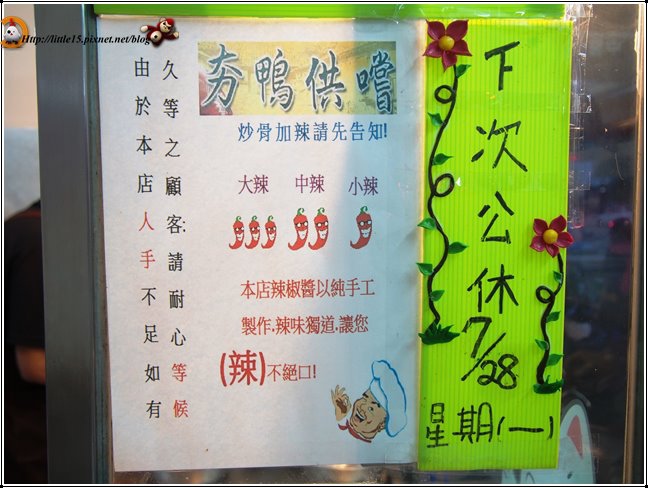 Http://little15.pixnet.net/blog
夯鴨供嚐
炒骨加辣請先告知!
大辣 中辣 小辣
本店辣椒醬以純手工
製作.辣味獨道.讓您
(辣)不絕口!
由於本店人手不足如有
久等之顧客;請耐心等候
下次公休
7/28
星期(一)